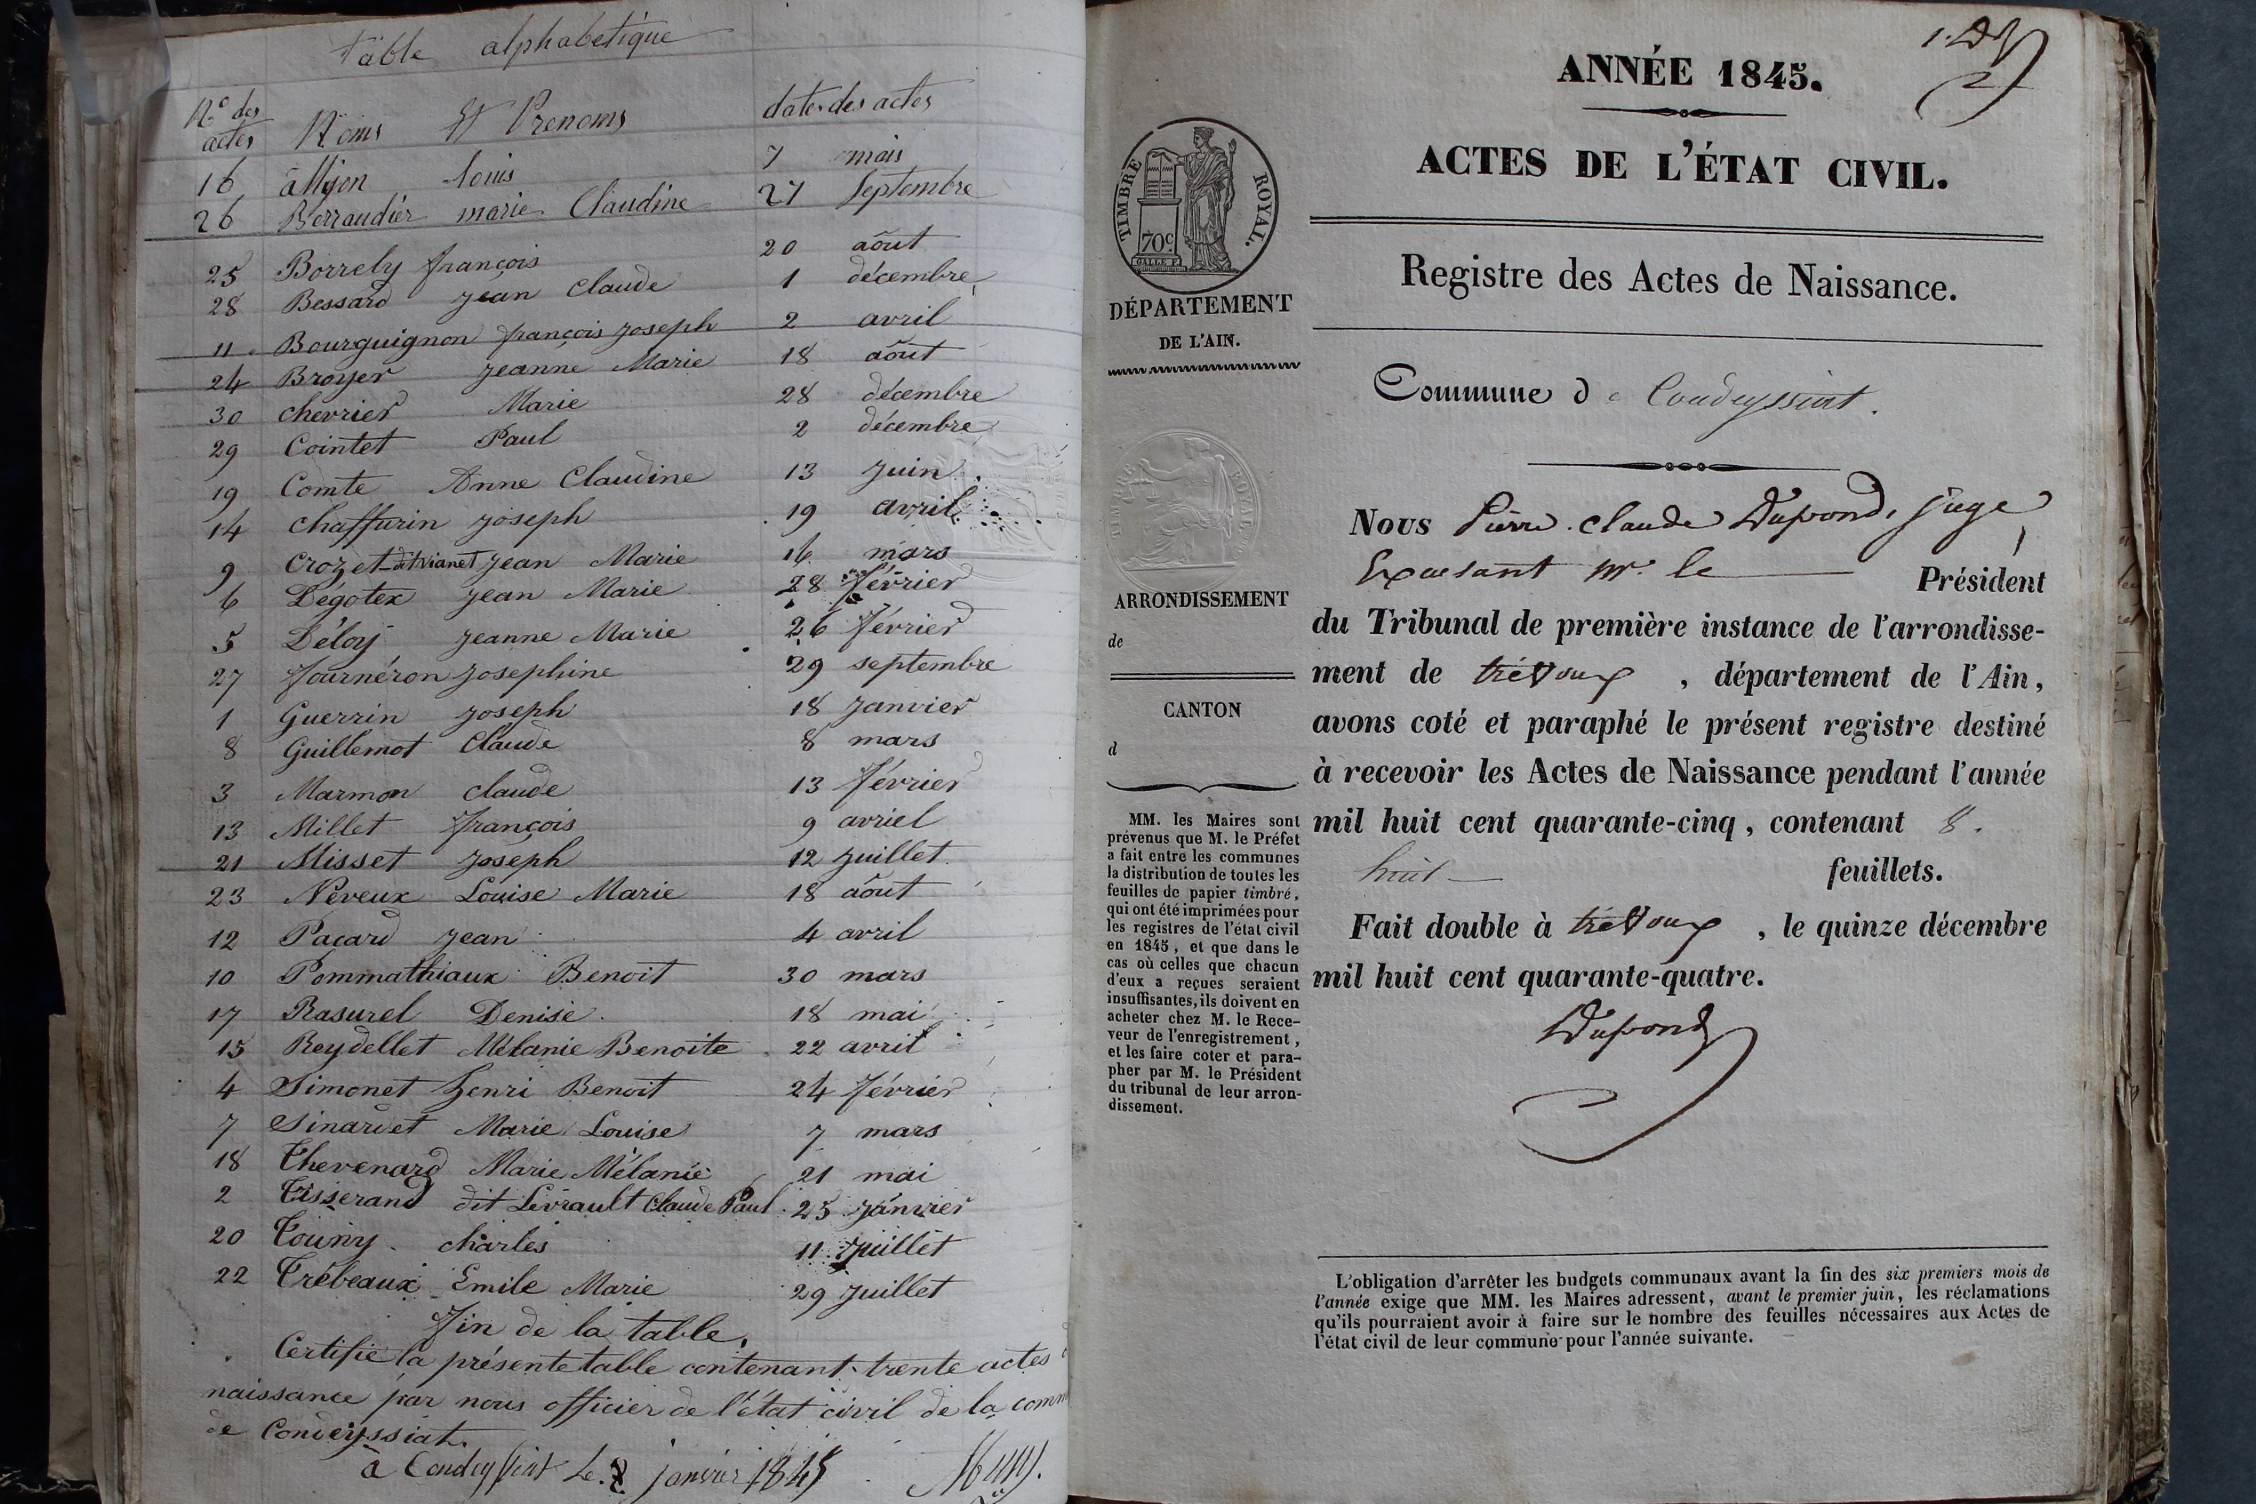 Table alphabetique
Nº des actes Noms Et Prenoms dates des actes
16 allyon Louis 7 mai
26 Berraudier marie Claudine 27 Septembre
25 Borrely françois 20 aôut
28 Bessard jean Claude 1 décembre
11 Bourguignon françois joseph 2 avril
24 Broyer jeanne Marie 18 aôut
30 chevrier Marie 28 décembre
29 Cointet Paul 2 décembre
19 Comte Anne Claudine 13 juin
14 Chaffurin joseph 19 avril
9 Crozet dit vianet jean Marie 16 mars
6 Dégotex jean Marie 28 février
5 Déloy jeanne Marie 26 février
27 fournéron josephine 29 septembre
1 Guerrin joseph 18 janvier
8 Guillemot Claude 8 mars
3 Marmon claude 13 février
13 Millet françois 9 avriel
21 Misset joseph 12 juillet
23 Néveux Louise Marie 18 aôut
12 Paçard jean 4 avril
10 Pommathiaux Benoit 30 mars
17 Rasurel Denise 18 mai
15 Reydellet Mélanie Benoite 22 avril
4 Simonet henri Benoit 24 février
7 Sinardet Marie Louise 7 mars
18 Thevenard Marie Mélanie 21 mai
2 Tisserand dit Levrault Claude Paul 25 janvier
20 Touny charles 11 juillet
22 Trébeaux Emile Marie 29 juillet
fin de la table.
Certifié la présente table contenant trente actes
naissance par nous officier de l'état civil de la comm
de Condeyssiat.
à Condeyssiat Le 2 janvier 1845
ANNÉE 1845.
ACTES DE L'ÉTAT CIVIL.
Registre des Actes de Naissance.
Commune de Condeyssiat.
TIMBRE ROYAL.
70c.
DÉPARTEMENT
DE L'AIN.
TIMBRE ROYAL
ARRONDISSEMENT
de
CANTON
d
MM. les Maires sont
prévenus que M. le Préfet
a fait entre les communes
la distribution de toutes les
feuilles de papier timbré,
qui ont été imprimées pour
les registres de l'état civil
en 1845, et que dans le
cas où celles que chacun
d'eux a reçues seraient
insuffisantes, ils doivent en
acheter chez M. le Rece-
veur de l'enregistrement,
et les faire coter et para-
pher par M. le Président
du tribunal de leur arron-
dissement.
Nous Pierre Claude Dupond, juge
Exousant Mr. le Président
du Tribunal de première instance de l'arrondisse-
ment de trévoux, département de l'Ain,
avons coté et paraphé le présent registre destiné
à recevoir les Actes de Naissance pendant l'année
mil huit cent quarante-cinq, contenant 8.
huit feuillets.
Fait double à trévoux, le quinze décembre
mil huit cent quarante-quatre.
Dupond
L'obligation d'arrêter les budgets communaux avant la fin des six premiers mois de
l'année exige que MM. les Maires adressent, avant le premier juin, les réclamations
qu'ils pourraient avoir à faire sur le nombre des feuilles nécessaires aux Actes de
l'état civil de leur commune pour l'année suivante.